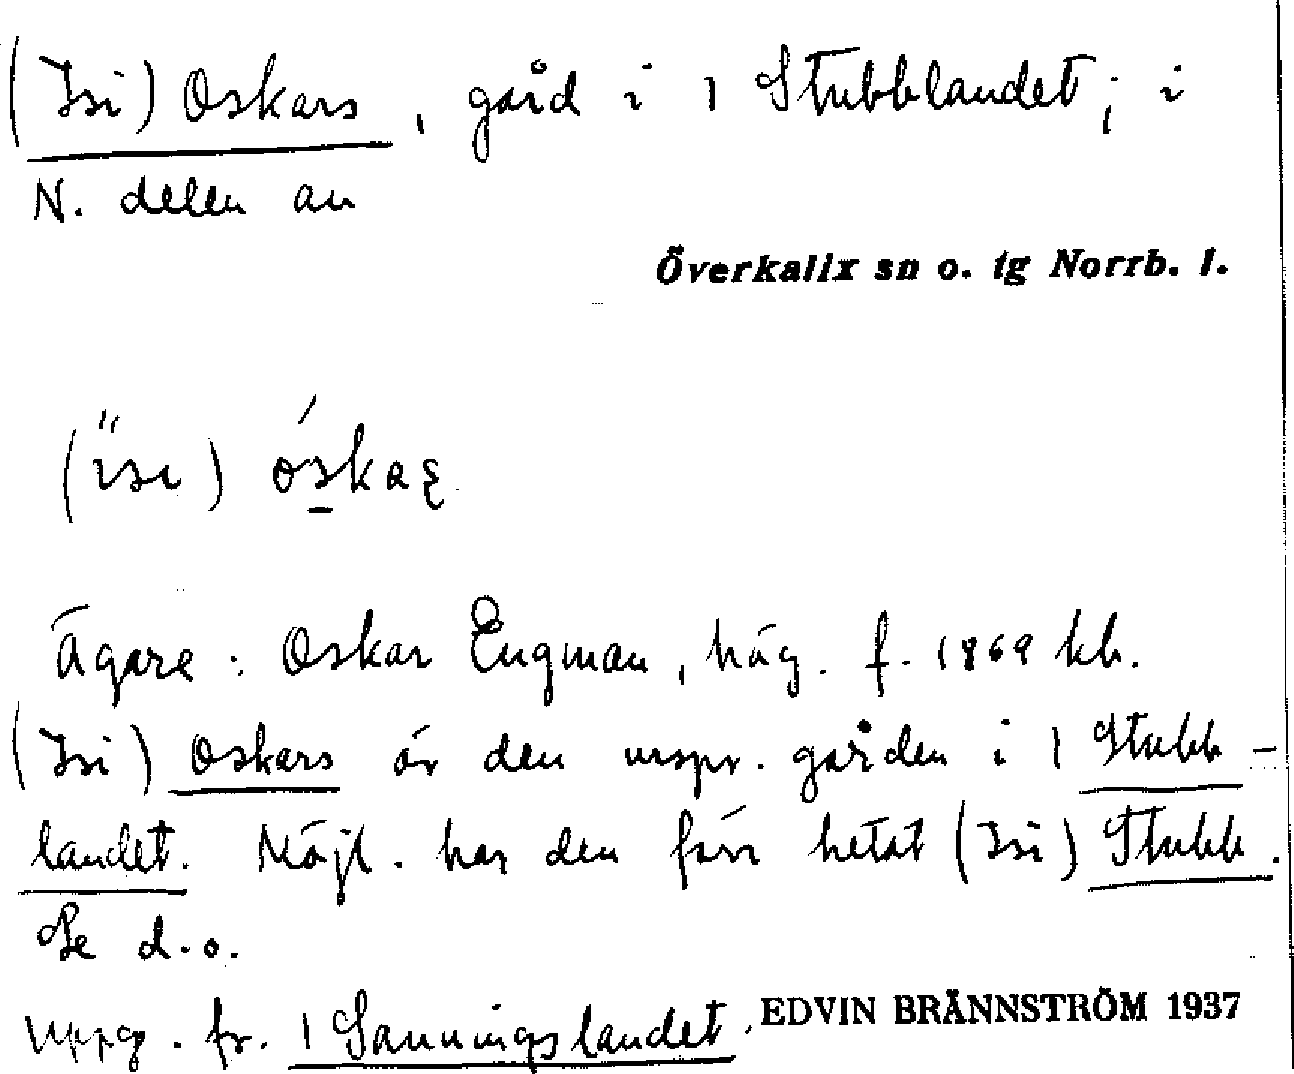 (Isi) Oskars, gård i 1 Stubblandet; i
N. delen av
Överkalix sn o. tg Norrb. l.
(ìsi) óskaʂ
Ägare: Oskar Engman, häg. f. 1869 kb.
(Isi) Oskars är den urspr. gården i 1 Stubb-
landet. Möjl. har den förr hetat (Isi) Stubb.
Se d.o.
Uppg. fr. 1 Sanningslandet. EDVIN BRÄNNSTRÖM 1937